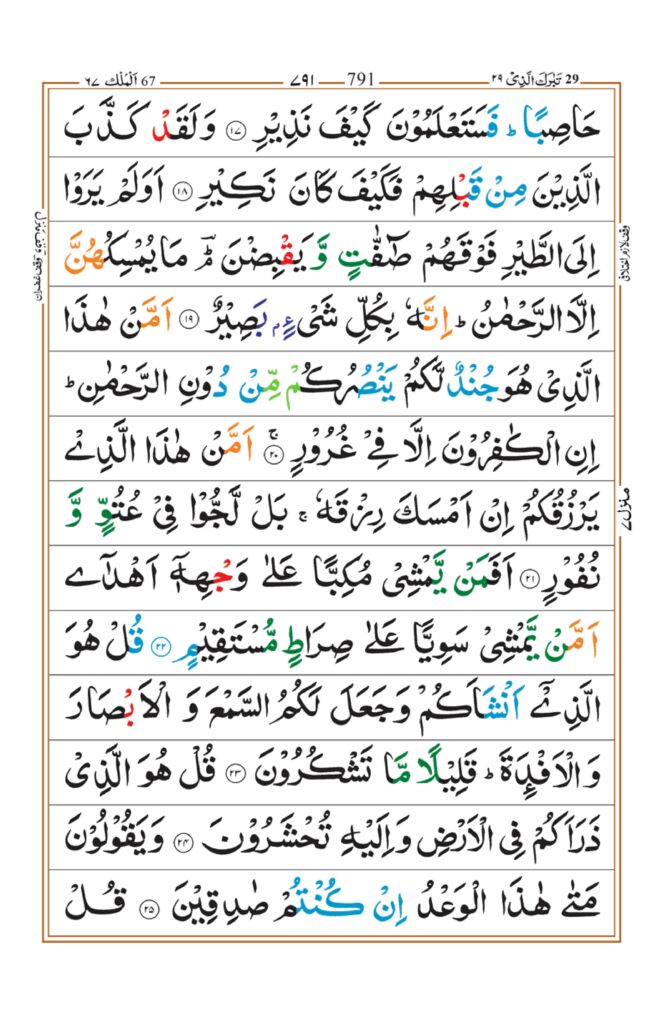 29 تَبٰرَكَ الَّذِیْ ۲۹
791 ۷۹۱
67 اَلْمُلْك ۶۷
حَاصِبًا ؕ فَسَتَعْلَمُوْنَ كَیْفَ نَذِیْرِ ۝۱۷ وَلَقَدْ كَذَّبَ
الَّذِیْنَ مِنْ قَبْلِهِمْ فَكَیْفَ كَانَ نَكِیْرِ ۝۱۸ اَوَلَمْ یَرَوْا
اِلَی الطَّیْرِ فَوْقَهُمْ صٰٓفّٰتٍ وَّ یَقْبِضْنَ ؔۘ مَا یُمْسِكُهُنَّ
اِلَّا الرَّحْمٰنُ ؕ اِنَّهٗ بِكُلِّ شَیْءٍۭ بَصِیْرٌ ۝۱۹ اَمَّنْ هٰذَا
الَّذِیْ هُوَ جُنْدٌ لَّكُمْ یَنْصُرُكُمْ مِّنْ دُوْنِ الرَّحْمٰنِ ؕ
اِنِ الْكٰفِرُوْنَ اِلَّا فِیْ غُرُوْرٍ ۚ۝۲۰ اَمَّنْ هٰذَا الَّذِیْ
یَرْزُقُكُمْ اِنْ اَمْسَكَ رِزْقَهٗ ۚ بَلْ لَّجُّوْا فِیْ عُتُوٍّ وَّ
نُفُوْرٍ ۝۲۱ اَفَمَنْ یَّمْشِیْ مُكِبًّا عَلٰی وَجْهِهٖۤ اَهْدٰۤی
اَمَّنْ یَّمْشِیْ سَوِیًّا عَلٰی صِرَاطٍ مُّسْتَقِیْمٍ ۝۲۲ قُلْ هُوَ
الَّذِیْۤ اَنْشَاَكُمْ وَجَعَلَ لَكُمُ السَّمْعَ وَ الْاَبْصَارَ
وَالْاَفْـِٕدَةَ ؕ قَلِیْلًا مَّا تَشْكُرُوْنَ ۝۲۳ قُلْ هُوَ الَّذِیْ
ذَرَاَكُمْ فِی الْاَرْضِ وَاِلَیْهِ تُحْشَرُوْنَ ۝۲۴ وَیَقُوْلُوْنَ
مَتٰی هٰذَا الْوَعْدُ اِنْ كُنْتُمْ صٰدِقِیْنَ ۝۲۵ قُلْ
منزل ۷